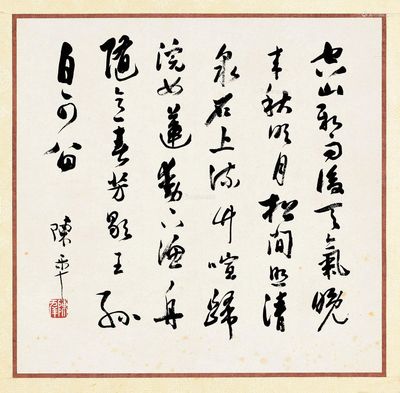 空山新雨後天氣晚
来秋明月松間照清
泉石上流竹喧歸
浣女蓮動下漁舟
隨意春芳歇王孫
自可留
陳平